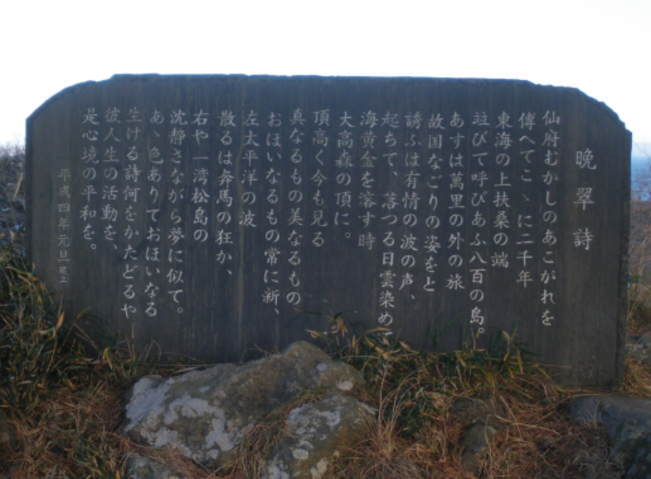 晩翠詩
仙府むかしのあこがれを
傳へてこゝに二千年
東海の上扶桑の端
竝びて呼びあふ八百の島。
あすは萬里の外の旅
故国なごりの姿をと
誘ふは有情の波の声、
起ちて、落つる日雲染めて
海黄金を溶す時
大高森の頂に。
頂高く今も見る
真なるもの美なるもの
おほいなるもの常に新、
左太平洋の波
散るは奔馬の狂か、
右や一湾松島の
沈静さながら夢に似て。
あゝ色ありておほいなる
生ける詩何をかたどるや
彼人生の活動を、
是心境の平和を。
平成四年元旦